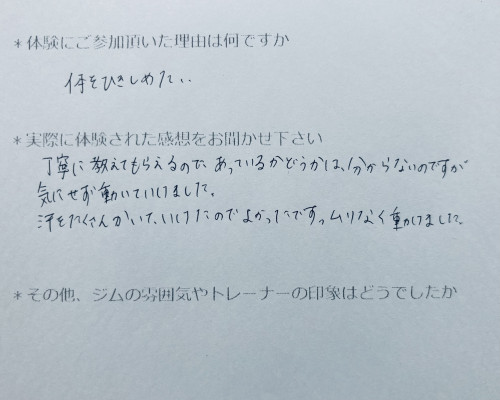 *体験にご参加頂いた理由は何ですか
体をひきしめたい.
*実際に体験された感想をお聞かせ下さい
丁寧に教えてもらえるので、あっているかどうかは、分からないのですが
気にせず動いていけました。
汗をたくさんかいて、いけたのでよかったですっムリなく動けました。
*その他、ジムの雰囲気やトレーナーの印象はどうでしたか